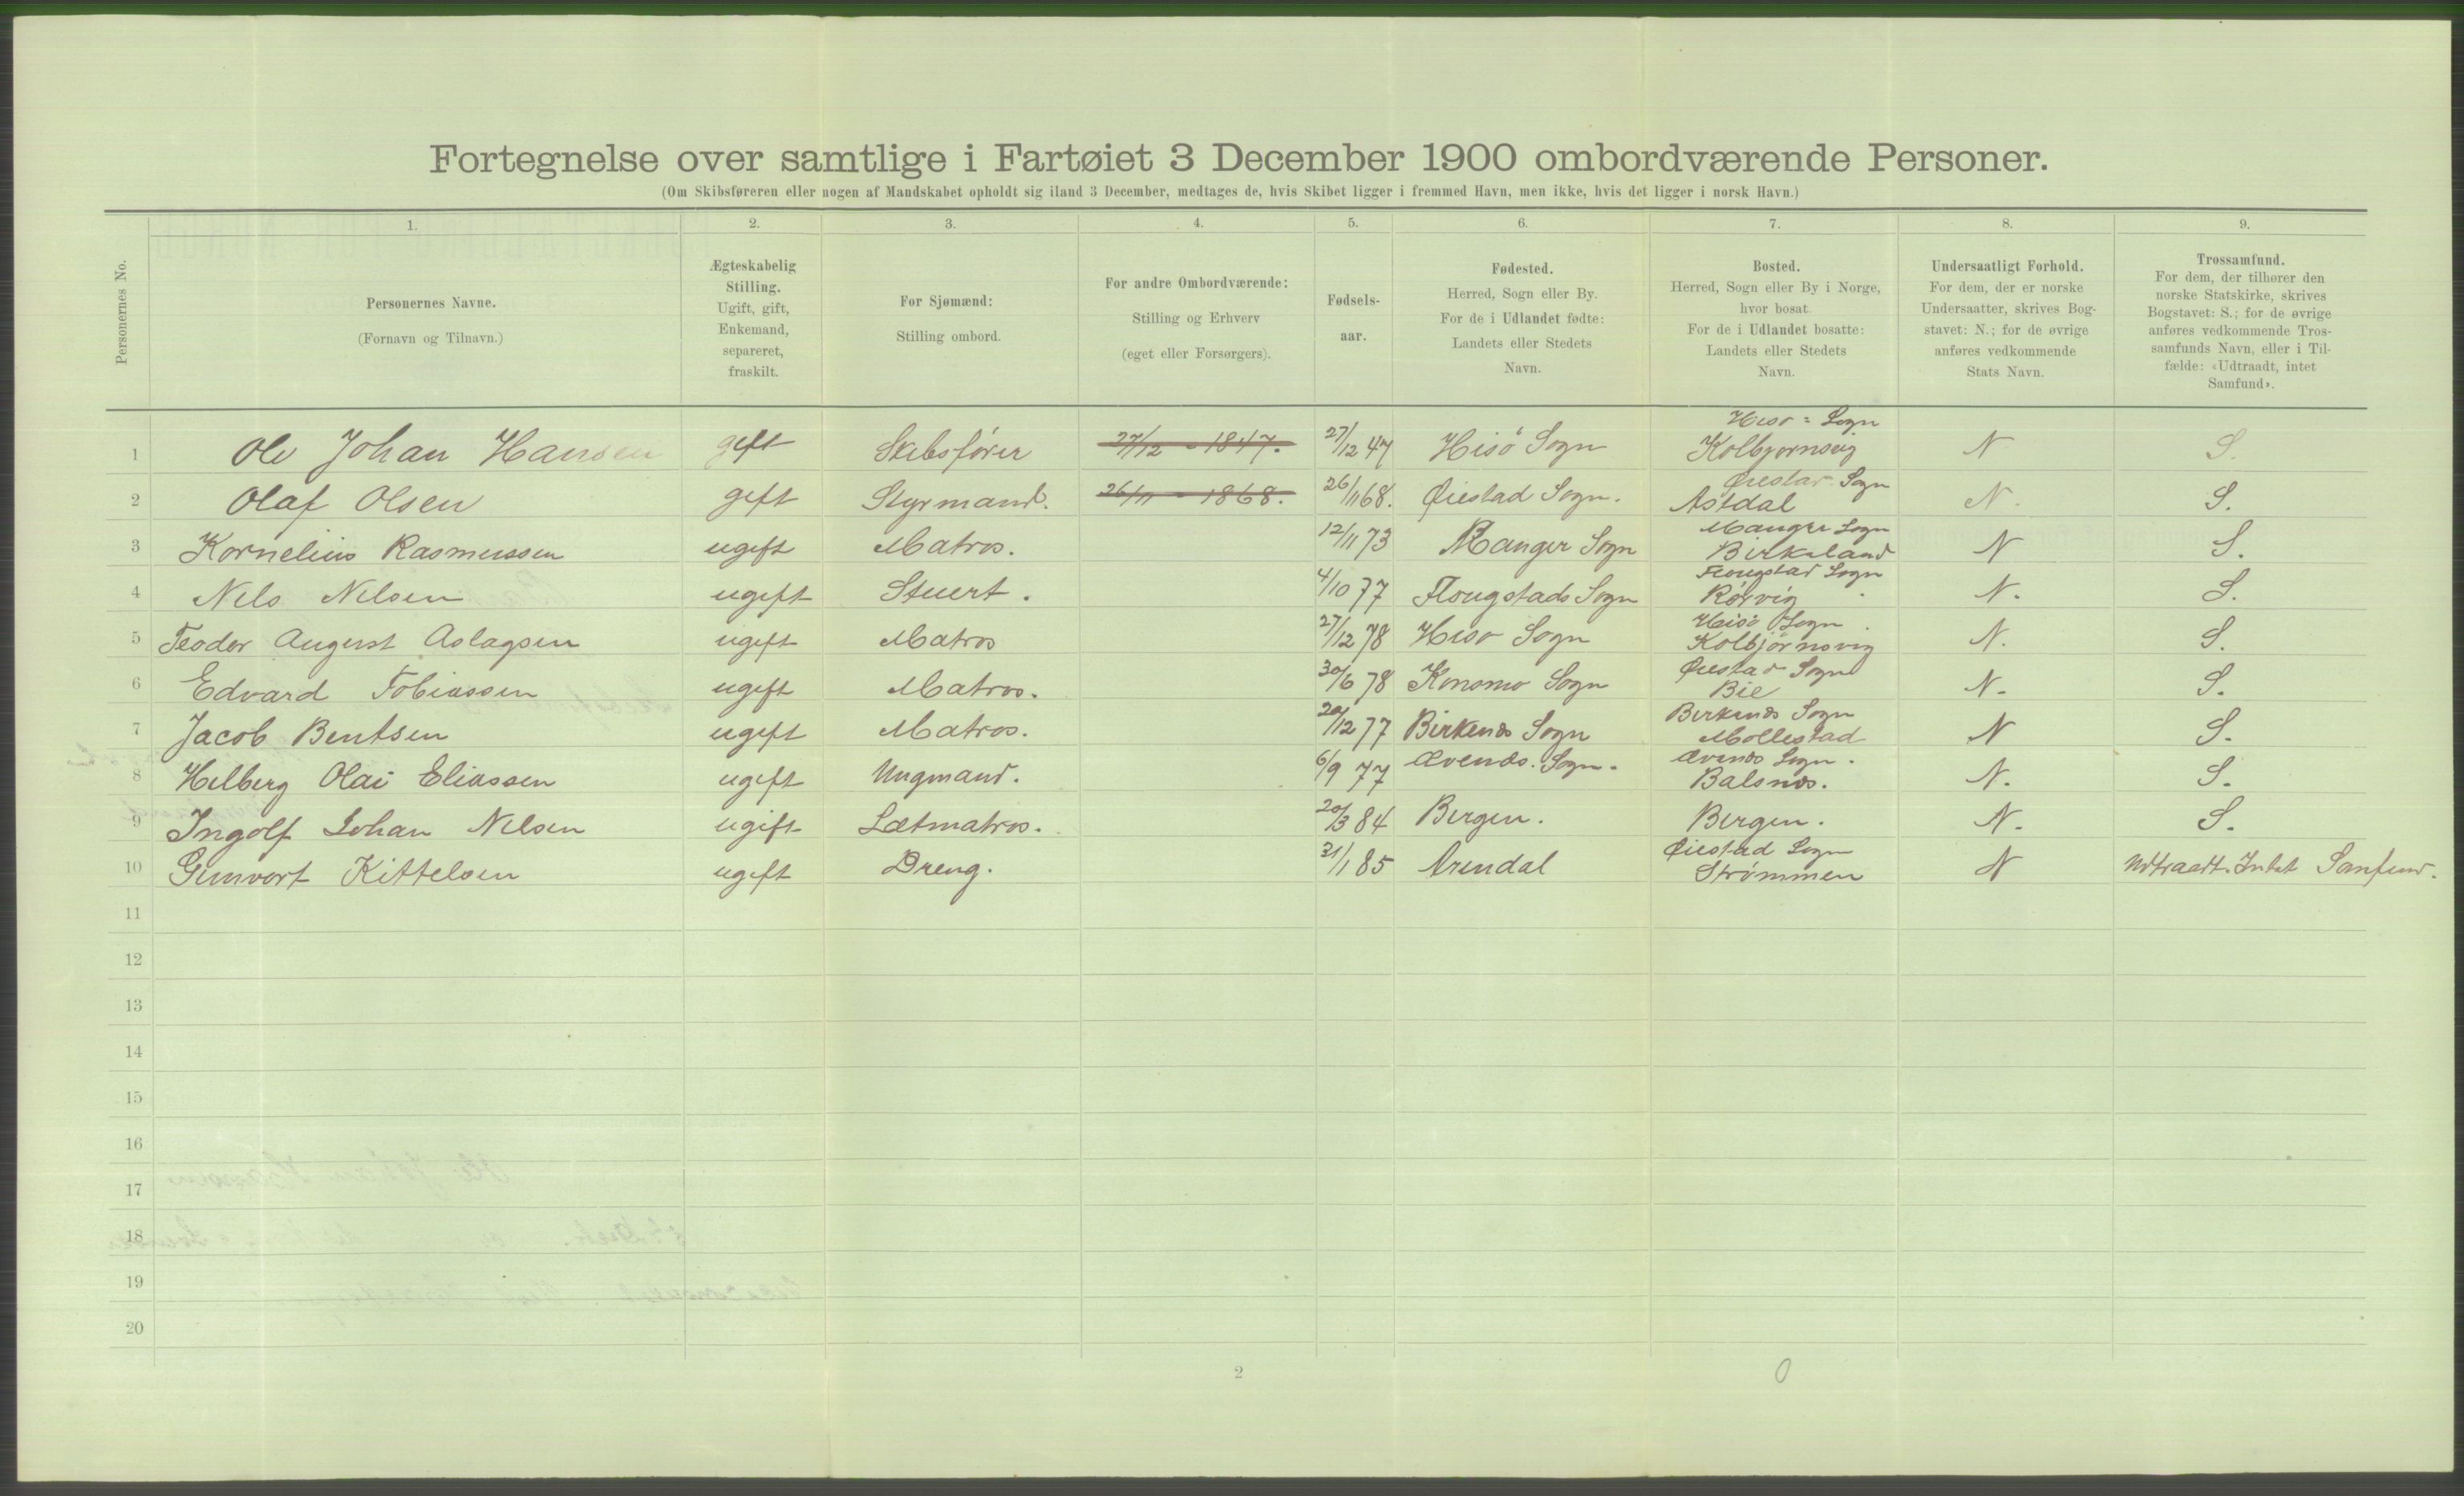 Fortegnelse over samtlige i Fartøiet 3 December 1900 ombordværende Personer.
(Om Skibsføreren eller nogen af Mandskabet opholdt sig iland 3 December, medtages de, hvis Skibet ligger i fremmed Havn, men ikke, hvis det ligger i norsk Havn.)
Personernes No.
1. 2. 3. 4. 5. 6. 7. 8. 9.
Personernes Navne.
(Fornavn og Tilnavn.)
Ægteskabelig
Stilling.
Ugift, gift,
Enkemand,
separeret,
fraskilt.
For Sjømænd:
Stilling ombord.
For andre Ombordværende:
Stilling og Erhverv
(eget eller Forsørgers).
Fødsels-
aar.
Fødested.
Herred, Sogn eller By.
For de i Udlandet fødte:
Landets eller Stedets
Navn.
Bosted.
Herred, Sogn eller By i Norge,
hvor bosat.
For de i Udlandet bosatte:
Landets eller Stedets
Navn.
Undersaatligt Forhold.
For dem, der er norske
Undersaatter, skrives Bog-
stavet: N.; for de øvrige
anføres vedkommende
Stats Navn.
Trossamfund.
For dem, der tilhører den
norske Statskirke, skrives
Bogstavet: S.; for de øvrige
anføres vedkommende Tros-
samfunds Navn, eller i Til-
fælde: «Udtraadt, intet
Samfund».
Hisø = Sogn
1 Ole Johan Hansen gift Skibsfører 27/12 - 1847. 27/12 47 Hisö Sogn Kolbjornsvig N S.
Øiestad Sogn
2 Olaf Olsen gift Styrmand. 26/11 - 1868. 26/11 68. Øiestad Sogn. Asdal N. S.
Manger Sogn
3 Kornelius Rasmussen ugift Matros. 12/11 73 Manger Sogn Birkeland N S.
Flougstad Sogn
4 Nels Nelsen ugift Stuert. 4/10 77 Flougstads Sogn Rørvig N. S.
Hisö Sogn.
5 Teodor August Aslagsen ugift Matros 27/12 78 Hisø Sogn Kolbjörnsvig N. S.
Øiestad Sogn
6 Edvard Tobiassen ugift Matros. 30/6 78 Konsmo Sogn Bie N. S.
Birkenæs Sogn
7 Jacob Bentsen ugift Matros. 20/12 77 Birkenæs Sogn Mollestad N S.
Ævenæs Sogn.
8 Helberg Olai Eliassen ugift Ungmand. 6/9 77 Ævenæs. Sogn. Balsnæs. N. S.
9 Ingolf Johan Nelsen ugift Lætmatros. 20/3 84 Bergen. Bergen. N. S.
Øiestad Sogn
10 Gunvort Kittelsen ugift Dreng. 31/1 85 Arendal Strømmen N Udtraadt. Intet Samfund.
11
12
13
14
15
16
17
18
19
20
2
0